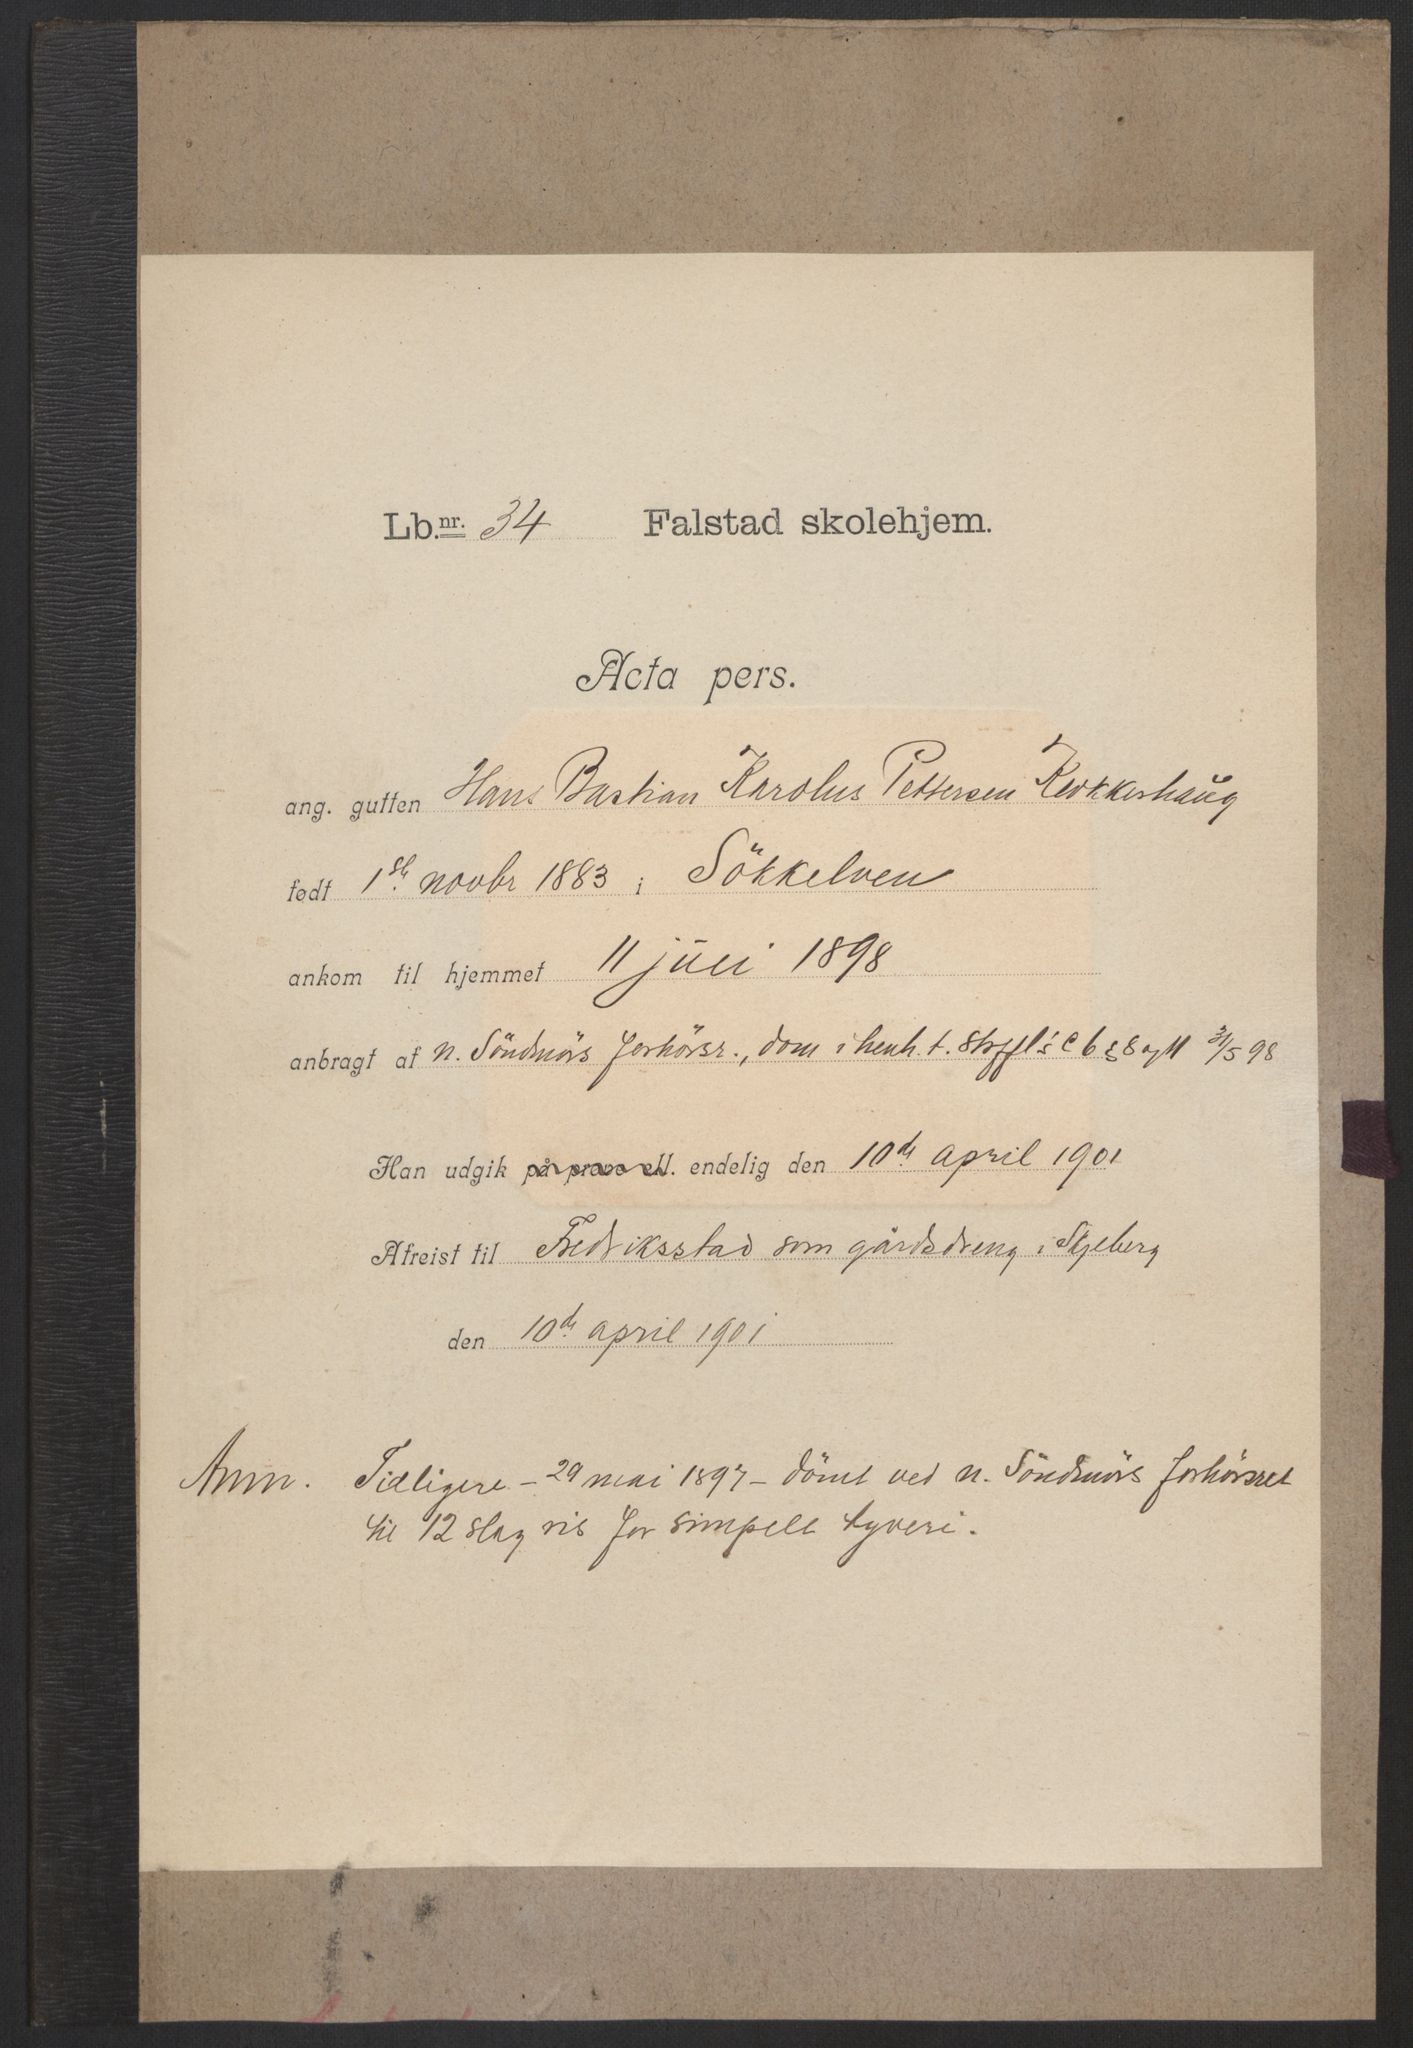 Lb.nr. 34 Falstad skolehjem.
Acta pers.
ang. gutten Hans Bastian Karolus Pettersen Klokkerhaug
født 1ste novbr 1883 i Sökkelven
ankom til hjemmet 11 juli 1898
anbragt af n. Söndmörs forhörsr., dom i henh. t. strffl's c 6 § 8 og 11 31/5 98
Han udgik på prøve ell. endelig den 10de april 1901
Afreist til Fredriksstad som gårdsdreng i Skjeberg
den 10de april 1901
Anm. Tidligere - 29 mai 1897 - dömt ved n. Söndmörs forhörsret
til 12 slag ris for simpelt tyveri.